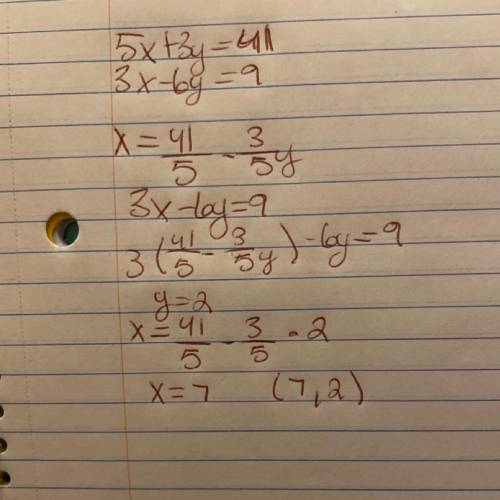 5x+3y=41
3x-6y=9
x=41/5-3/5y
3x-6y=9
3(41/5-3/5y)-6y=9
y=2
x=41/5-3/5·2
x=7 (7,2)